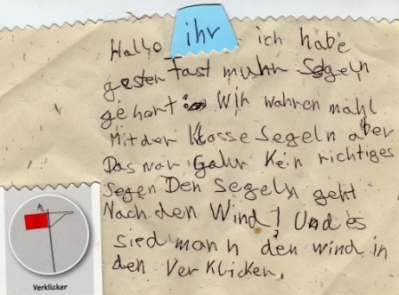 Hallo ihr ich habe
gestern fast muhr Segeln
gehort Wir wahren mahl
Mit der Klasse Segeln aber
Das war Gahr Kein richtiges
Segen Den Segeln geht
Nach den Wind! Und es
sied man den wind in
den Verklicker,
Verklicker